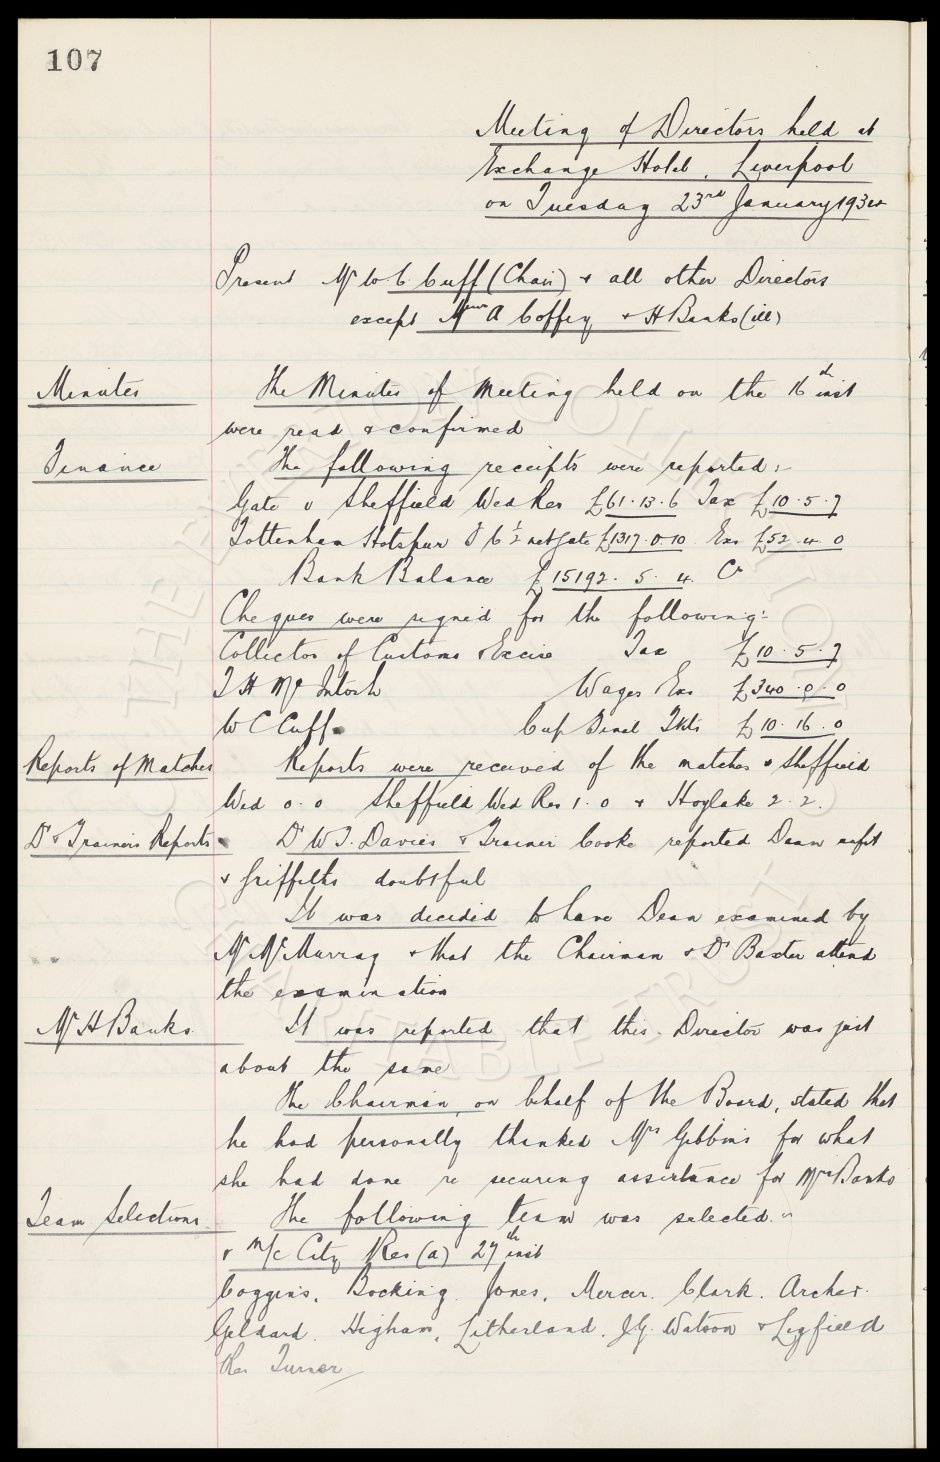 107
Meeting of Directors held at
Exchange Hotel, Liverpool
on Tuesday 23rd January 1934
Present Mr W.C. Cuff (Chair) & all other Directors
except Messrs A Coffey & H Banks (ill)
Minutes The Minutes of Meeting held on the 16th inst
were read & confirmed
Finance The following receipts were reported:-
Gate v Sheffield Wed Res £61.13.6 Tax £10.5.7
Tottenham Hotspur net gate £1317.0.10 Exs £52.4.0
Bank Balance £15192.5.4 Cr
Cheques were signed for the following:-
Collector of Customs & Excise Tax £10.5.7
T H McIntosh Wages Exs £340.0.0
W C Cuff Cup Final Tkts £10.16.0
Reports of Matches Reports were received of the matches v Sheffield
Wed 0.0 Sheffield Wed Res 1.0 & Hoylake 2.2.
Dr & Trainers Reports Dr W.T. Davies & Trainer Cooke reported Dean unfit
& Griffiths doubtful
It was decided to have Dean examined by
Mr McMurray & that the Chairman & Dr Baxter attend
the examination
Mr H Banks It was reported that this Director was just
about the same
The Chairman, on behalf of the Board, stated that
he had personally thanked Mrs Gibbins for what
she had done re securing assistance for Mrs Banks
Team Selections The following team was selected:-
v M/c City Res (a) 27th inst
Coggins, Bocking, Jones, Mercer, Clark, Archer,
Geldard, Higham, Litherland, J.G. Watson & Leyfield
Res Turner
THE EVERTON COLLECTION
CHARITABLE TRUST